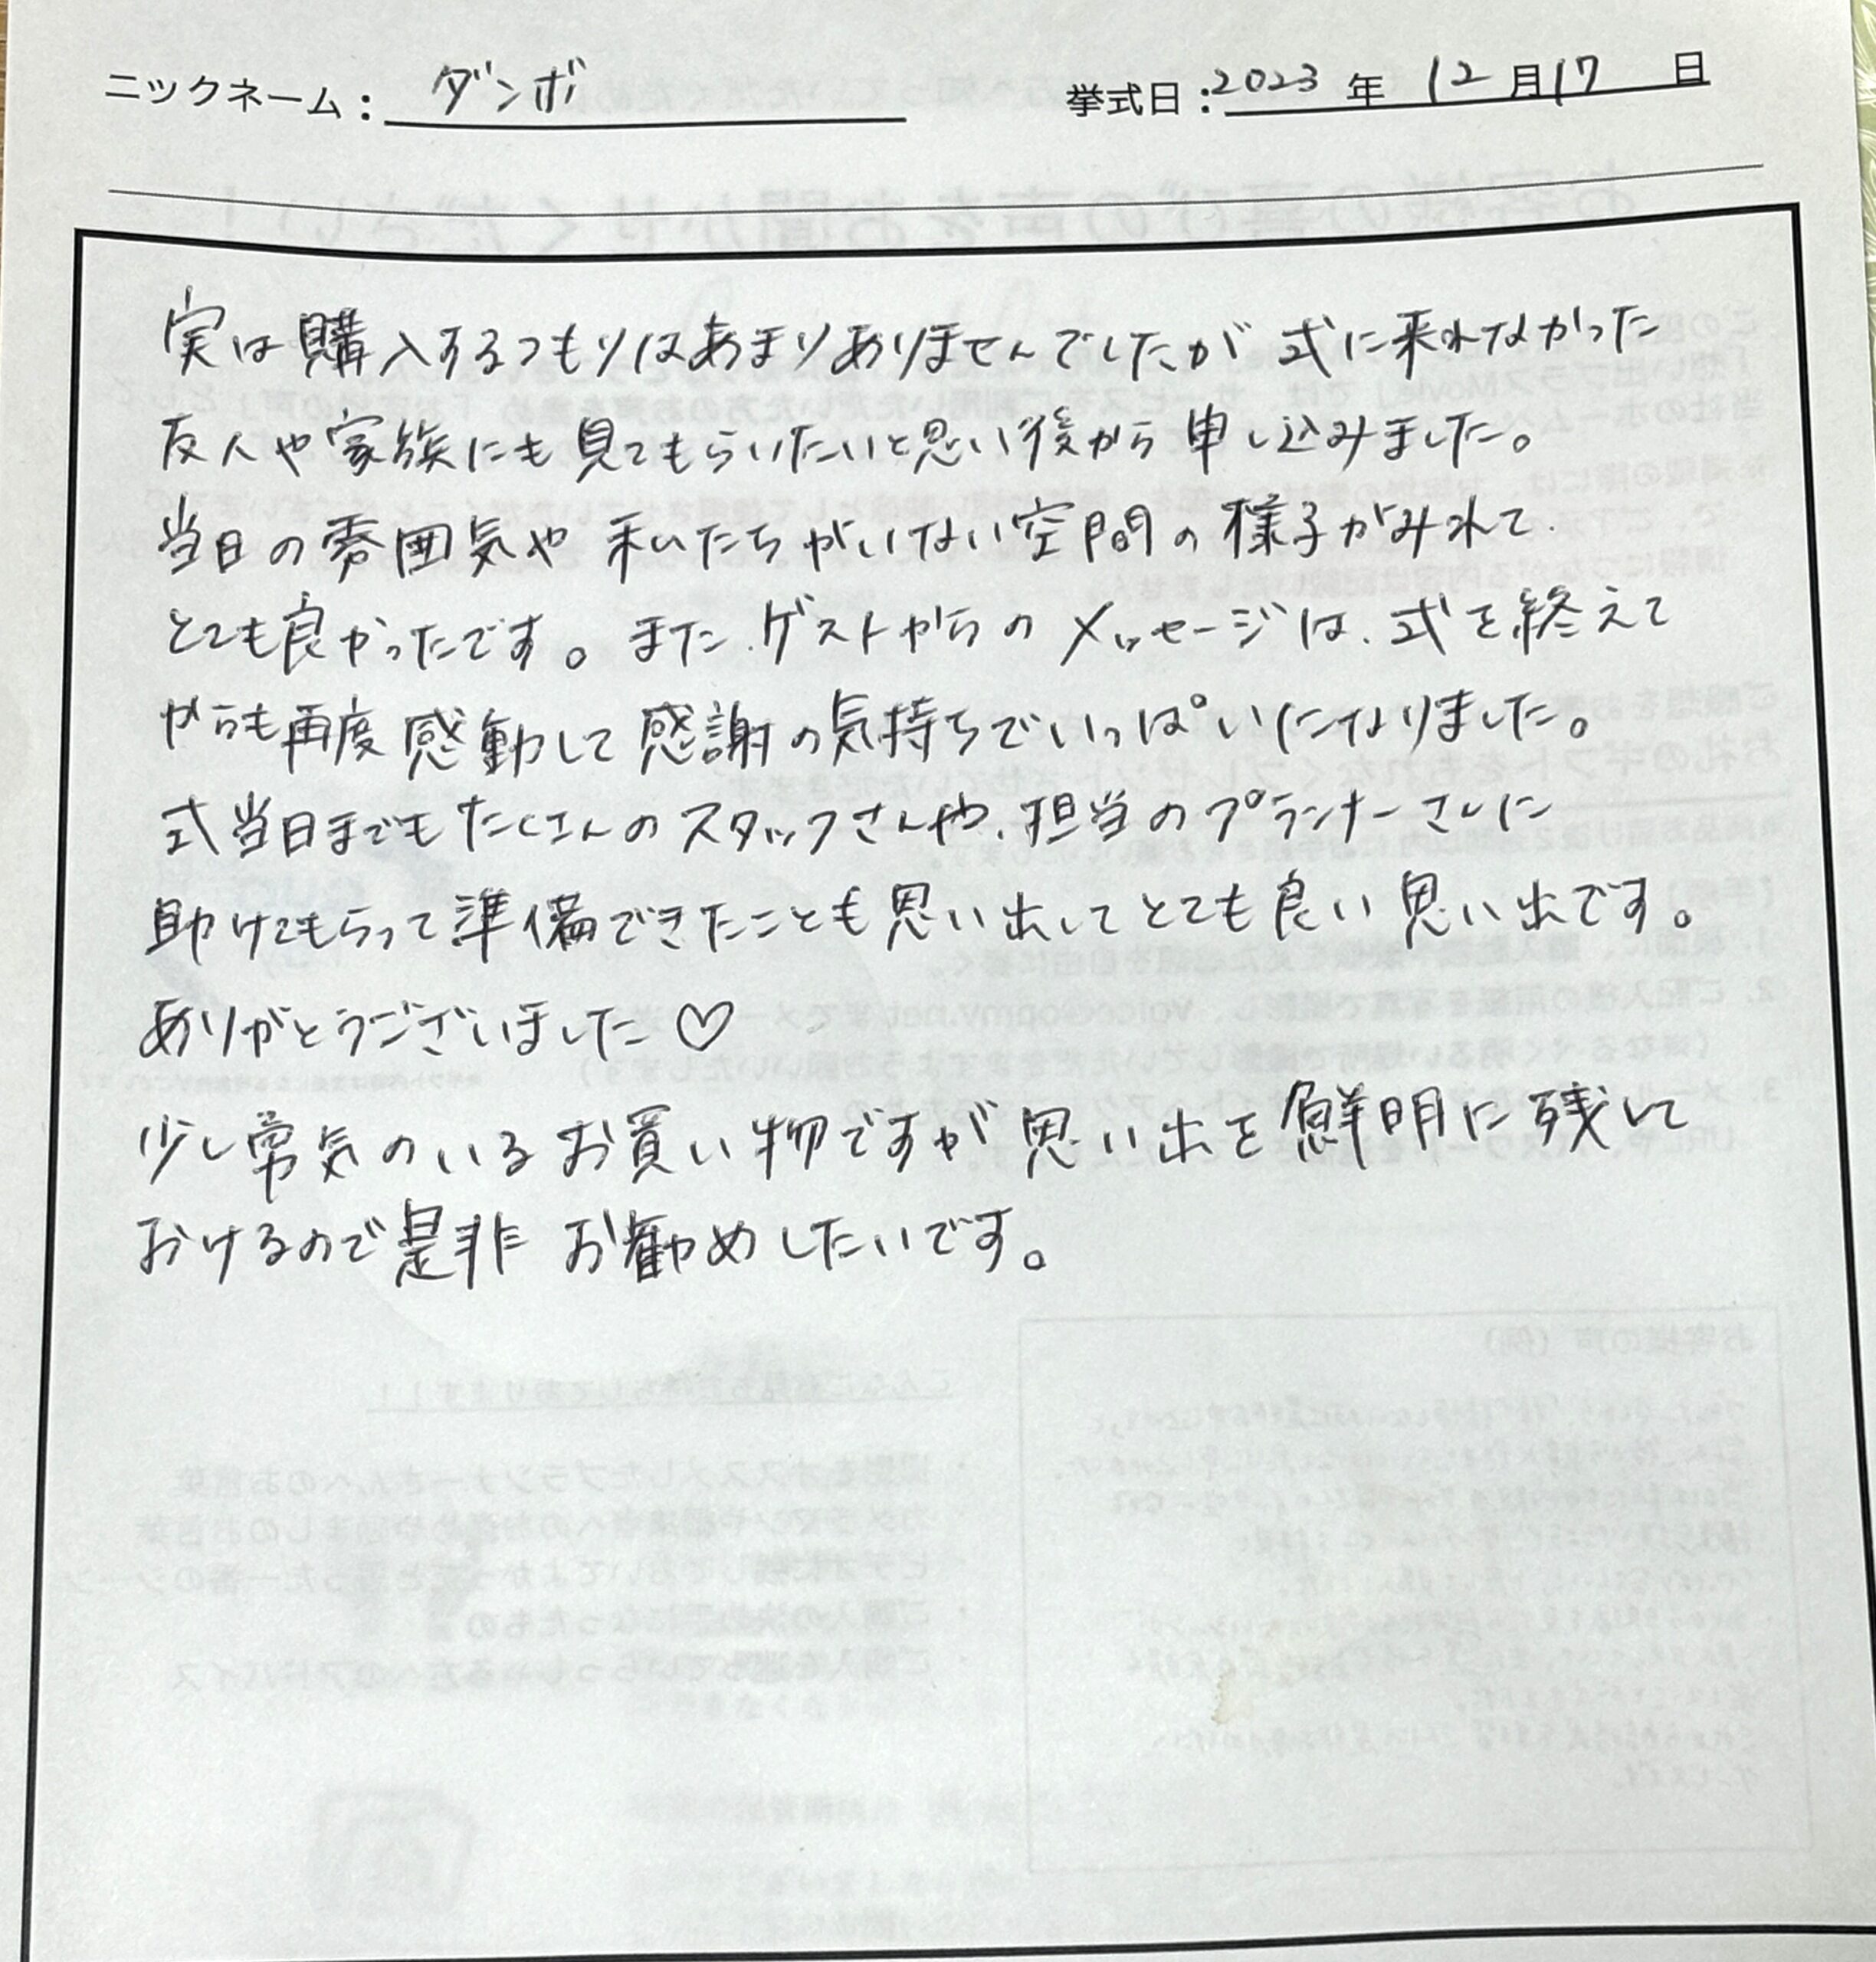 ニックネーム： ダンボ 挙式日：2023 年 12 月 17 日
実は購入するつもりはあまりありませんでしたが 式に来れなかった
友人や家族にも見てもらいたいと思い後から申し込みました。
当日の雰囲気や私たちがいない空間の様子がみれて、
とても良かったです。また、ゲストからのメッセージは、式を終えて
からも再度感動して感謝の気持ちでいっぱいになりました。
式当日までもたくさんのスタッフさんや、担当のプランナーさんに
助けてもらって準備できたことも思い出してとても良い思い出です。
ありがとうございました♡
少し勇気のいるお買い物ですが思い出を鮮明に残して
おけるので是非お勧めしたいです。